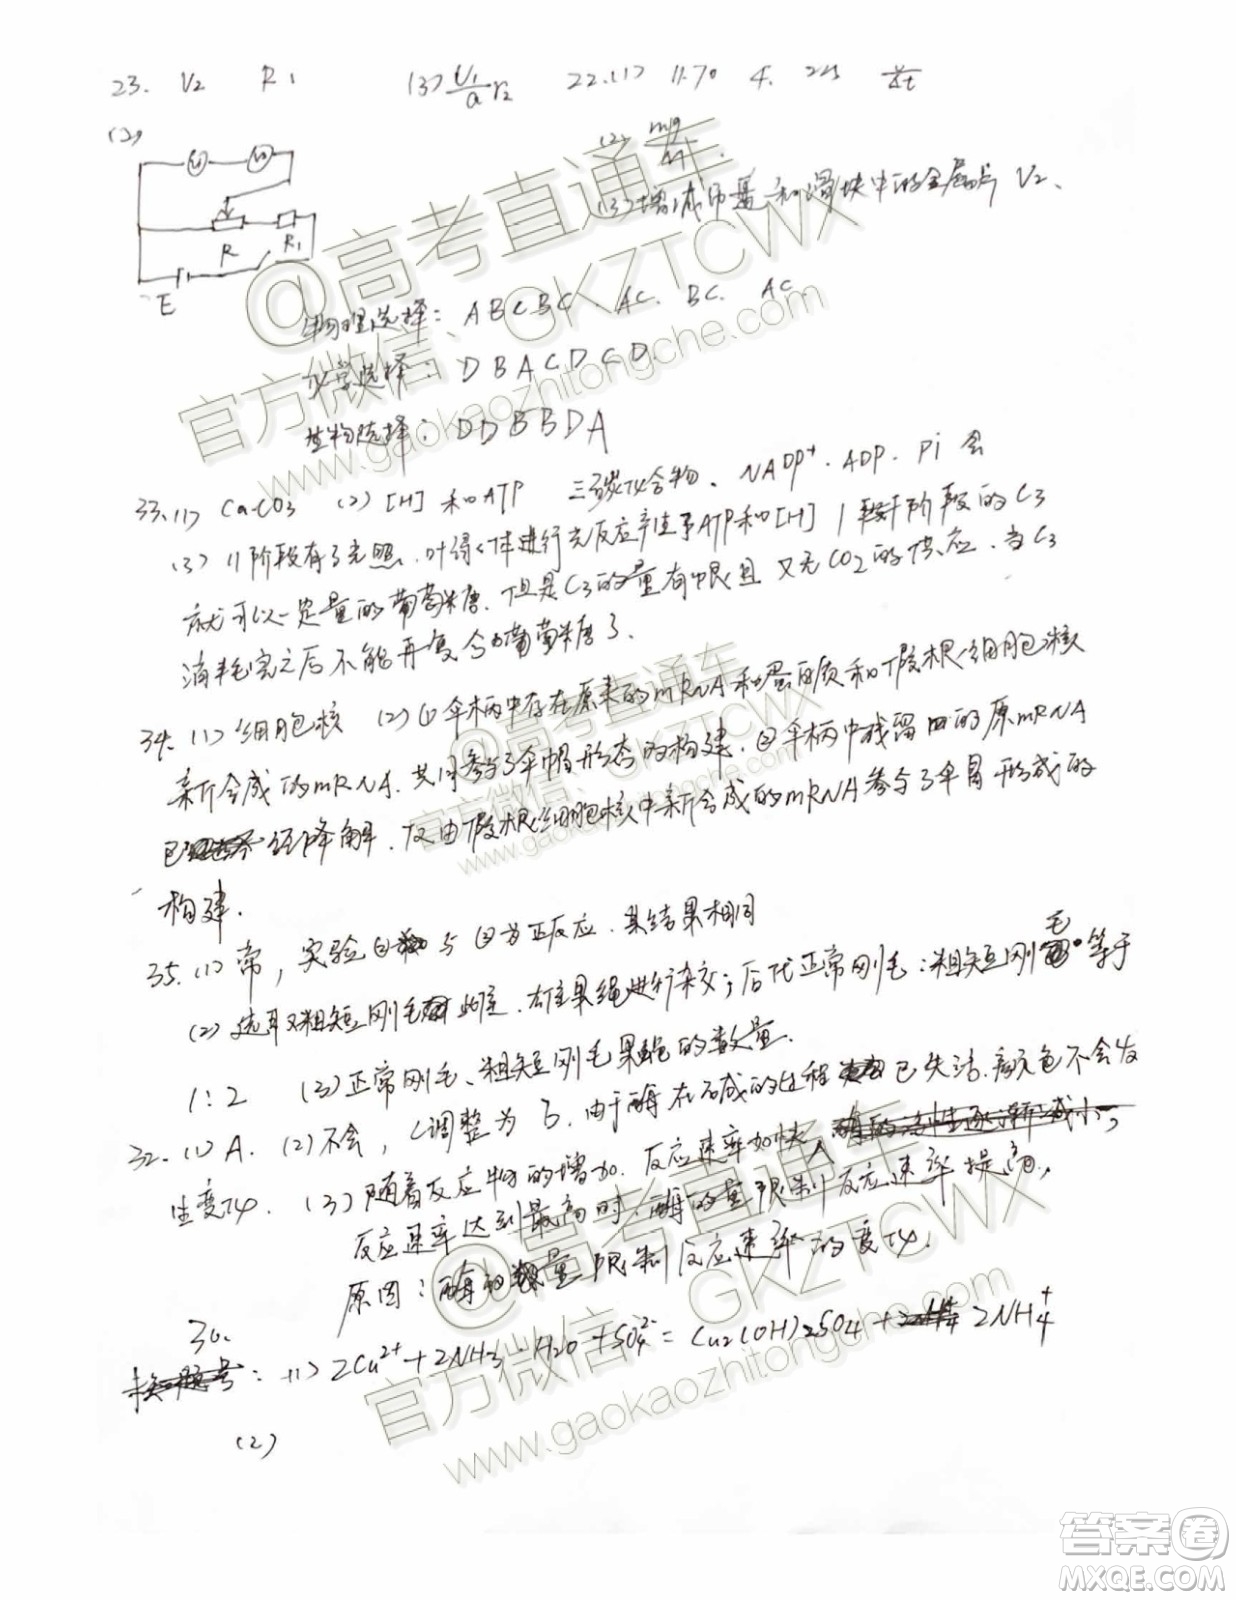 23. V₂ R₁ (3) U₁/a r₂ 22.(1) 11.70 4.
(2)
(2)
R R₁
E
(3) 增减 和滑块中的金属片 V₂.
物理选择: A B C B C. AC. BC. AC.
选择: D B A C D C D.
生物选择: D D B B D A
33.(1) CaCO₃ (2) [H] 和 ATP 三碳化合物、NADP⁺. ADP. Pi
(3) II阶段有了光照. 叶绿体进行光反应产生了ATP和[H] I 阶段的C3
就可以一定量的葡萄糖. 但是C3的量有限且又无CO₂的供应. 当C3
消耗完之后不能再复合葡萄糖了.
34. (1) 细胞核 (2) ① 伞柄中存在原来的mRNA和蛋白质和假根细胞核
新合成的mRNA. 共同参与了伞帽形态的构建. ② 伞柄中残留 的原mRNA
已 经降解. 仅由假根细胞核中新合成的mRNA参与了伞冒形成的
构建.
35. (1) 常, 实验① 与②为正反应. 其结果相同
(2) 选取粗短刚毛 雌. 雄果绳进行杂交; 后代正常刚毛:粗短刚毛 等于
1:2 (3) 正常刚毛、粗短刚毛果蝇的数量.
32. (1) A. (2) 不会, 调整为 由于酶在 碱的过程 已失活. 颜色不会发
生变化. (3) 随着反应物的增加. 反应速率加快, 酶的活性逐渐减小,
反应速率达到最高时. 酶的量限制反应速率提高.
原因: 酶的 量限制反应速率的变化.
30.
换题号: (1) 2Cu²⁺+2NH₃·H₂O+SO₄²⁻=Cu₂(OH)₂SO₄+ 2NH₄⁺
(2)
@高考直通车
官方微信:GKZTCWX
www.gaokaozhitongche.com
@高考直通车
官方微信:GKZTCWX
www.gaokaozhitongche.com
@高考直通车
官方微信:GKZTCWX
www.gaokaozhitongche.com
答案圈
MXQE.COM